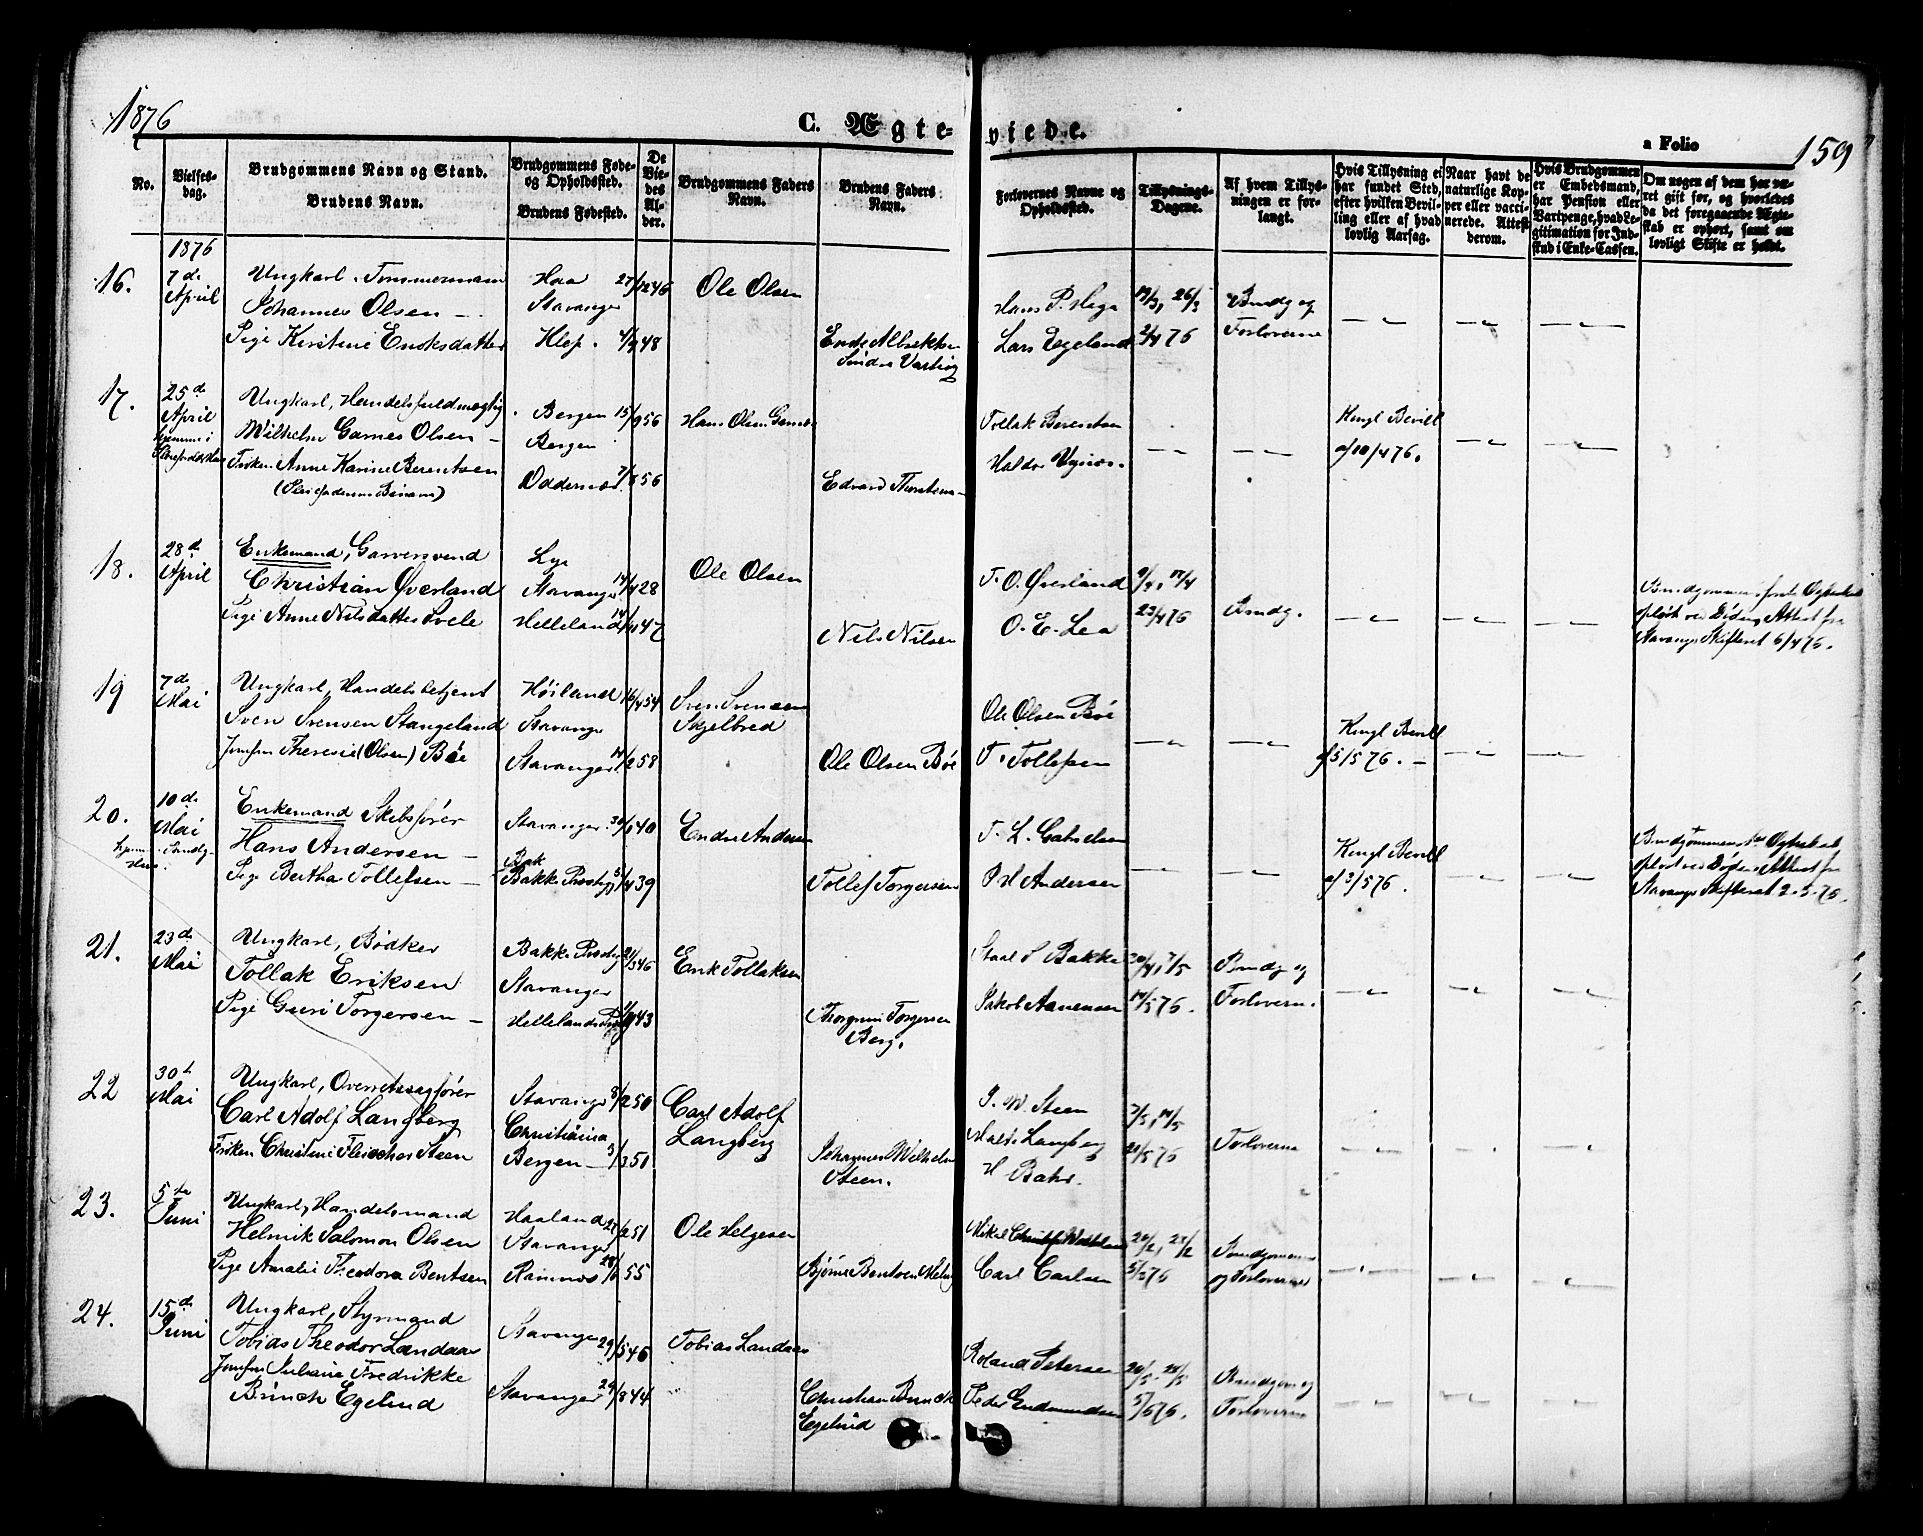 1876
C. Ægte-
viede.
a Folio
159
No.
Vielses-
dag.
Brudgommens Navn og Stand.
Brudens Navn.
Brudgommens Føde-
og Opholdssted.
Brudens Fødested.
De
Vie-
des
Al-
der.
Brudgommens Faders
Navn.
Brudens Faders
Navn.
Forlovernes Navne og
Opholdssted.
Tillysnings-
Dagene.
Af hvem Tillys-
ningen er for-
langt.
Hvis Tillysning ei
har fundet Sted,
efter hvilken Bevil-
ling eller af hvad
lovlig Aarsag.
Naar havt de
naturlige Kop-
per eller vacci-
nerede. Attest
derom.
Hvis Brudgommen
er Embedsmand,
har Pension eller
Vartpenge, hvad Le-
gitimation for Ind-
skud i Enke-Cassen.
Om nogen af dem har væ-
ret gift før, og hvorledes
da det foregaaende Ægte-
skab er ophørt, samt om
lovligt Skifte er holdt.
1876
16.
7de
April
Ungkarl, Tømmermand
Johannes Olsen
Pige Kirstine Endsdatter
Haa 27/12 46
Stavanger
Klep. 4/2 48
Ole Olsen
Hans P. Hega
Lars Egeland
19/3, 26/3
2/4 76
Brudg og
Forloverne
17.
25de
April
Ungkarl, Handelsfuldmægtig
Wilhelm Garnes Olsen
Frøken Anne Karine Berentsen
Bergen 15/9 56
Bergen
Oddernes 7/8 56
Hans Olsen Garnes
Edvard
Tollak Berentsen
Kongl Bevill
af 10/4 76.
18.
28de
April
Enkemand, Garversvend
Christian Øverland
Pige Anne Nilsdatter Svele
Lye
Stavanger 14/4 28
Helleland 14/11 47
Ole Olsen
Nils Nilsen
T. O. Øverland
O. E. Lea
9/4, 17/4
23/4 76
Brudg.
Brudgommens forste Egteskab
opløst ved Døden, Attest fra
Stavanger Skifteret 6/4 76.
19
7de
Mai
Ungkarl, Handelsbetjent
Sven Svensen Stangeland
Jomfru Theresie (Olsen) Bøe
Høiland 16/4 54
Stavanger
Stavanger 14/2 58
Sven Svensen
Skjelbred
Ole Olsen Bøe
Ole Olsen Bøe
T. Tollefsen
Kongl Bevill
af 5/5 76.
20.
10de
Mai
Enkemand Skibsfører
Hans Andersen
Pige Bertha Tollefsen
Stavanger 30/6 40
Bakke Prestegj 5/4 39
Endre Andersen
Tollef Torgersen
T. L. Gabrielsen
P. H Andersen
Kongl Bevill
af 3/5 76.
Brudgommens 1ste Egteskab
opløst ved Døden, Attest fra
Stavanger Skifteret 2-5-76.
21.
23de
Mai
Ungkarl, Bødker
Tollak Eriksen
Pige Guri Torgersen
Bakke Prestegj 21/3 46
Stavanger
Hellelands 43
Erik Tollaksen
Torgersen
Berg.
Bakke
Jakob Aanensen
30/4, 7/5
14/5 76.
Brudg og
Forlovern.
22
30te
Mai
Ungkarl, Overretssagfører
Carl Adolf Langberg
Frøken Christine Fleischer Steen
Stavanger 8/2 50
Christiania
Bergen 3/3 51
Carl Adolf
Langberg
Johannes Wilhelm
Steen.
J. W. Steen
Langberg
7/5, 14/5
21/5 76
Forloverne
23.
5te
Juni
Ungkarl, Handelsmand
Helmik Salomon Olsen
Pige Amalie Theodora Bentsen
Haaland 51
Stavanger
55
Ole Helgesen
Carl Carlsen
20/2, 27/2
5/3 76
Brudgommen
og Forloverne
24.
15de
Juni
Ungkarl, Styrmand
Tobias Theodor Landaas
Jomfru Juliane Fredrikke
Brinch Egelund
Stavanger 29/5 46
Stavanger 29/8 44
Tobias Landaas
Christian Brinch
Egelund
Roland Petersen
Peder Endmundsen
5/6 76.
Brudgom og
Forloverne